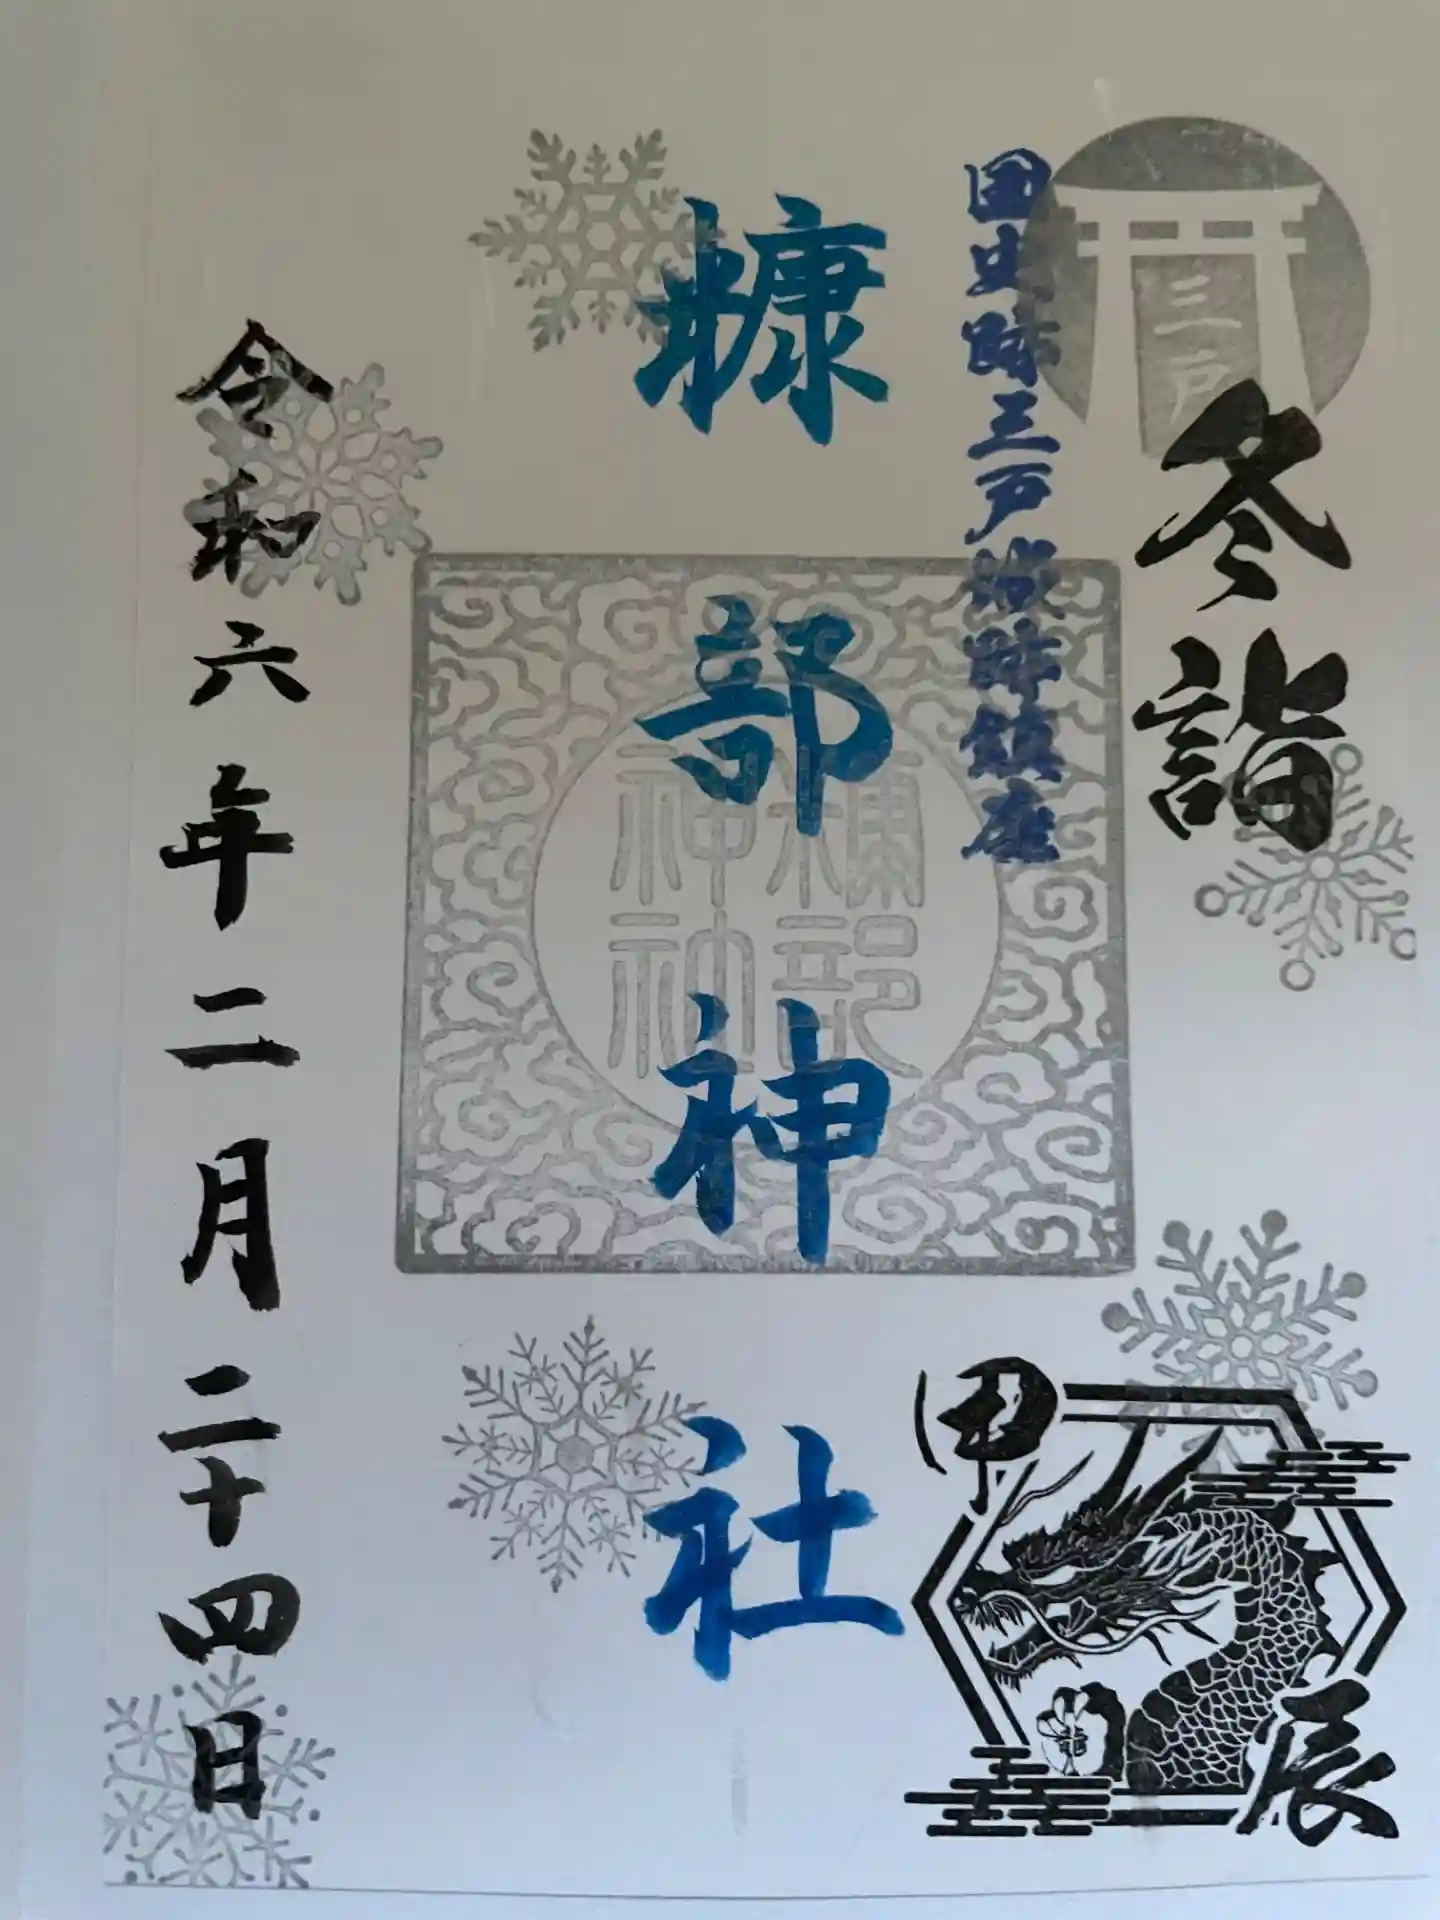 三戸
冬詣
国史跡三戸城跡鎮座
甲
辰
龍
糠部神社
糠部
神社
令和六年二月二十四日